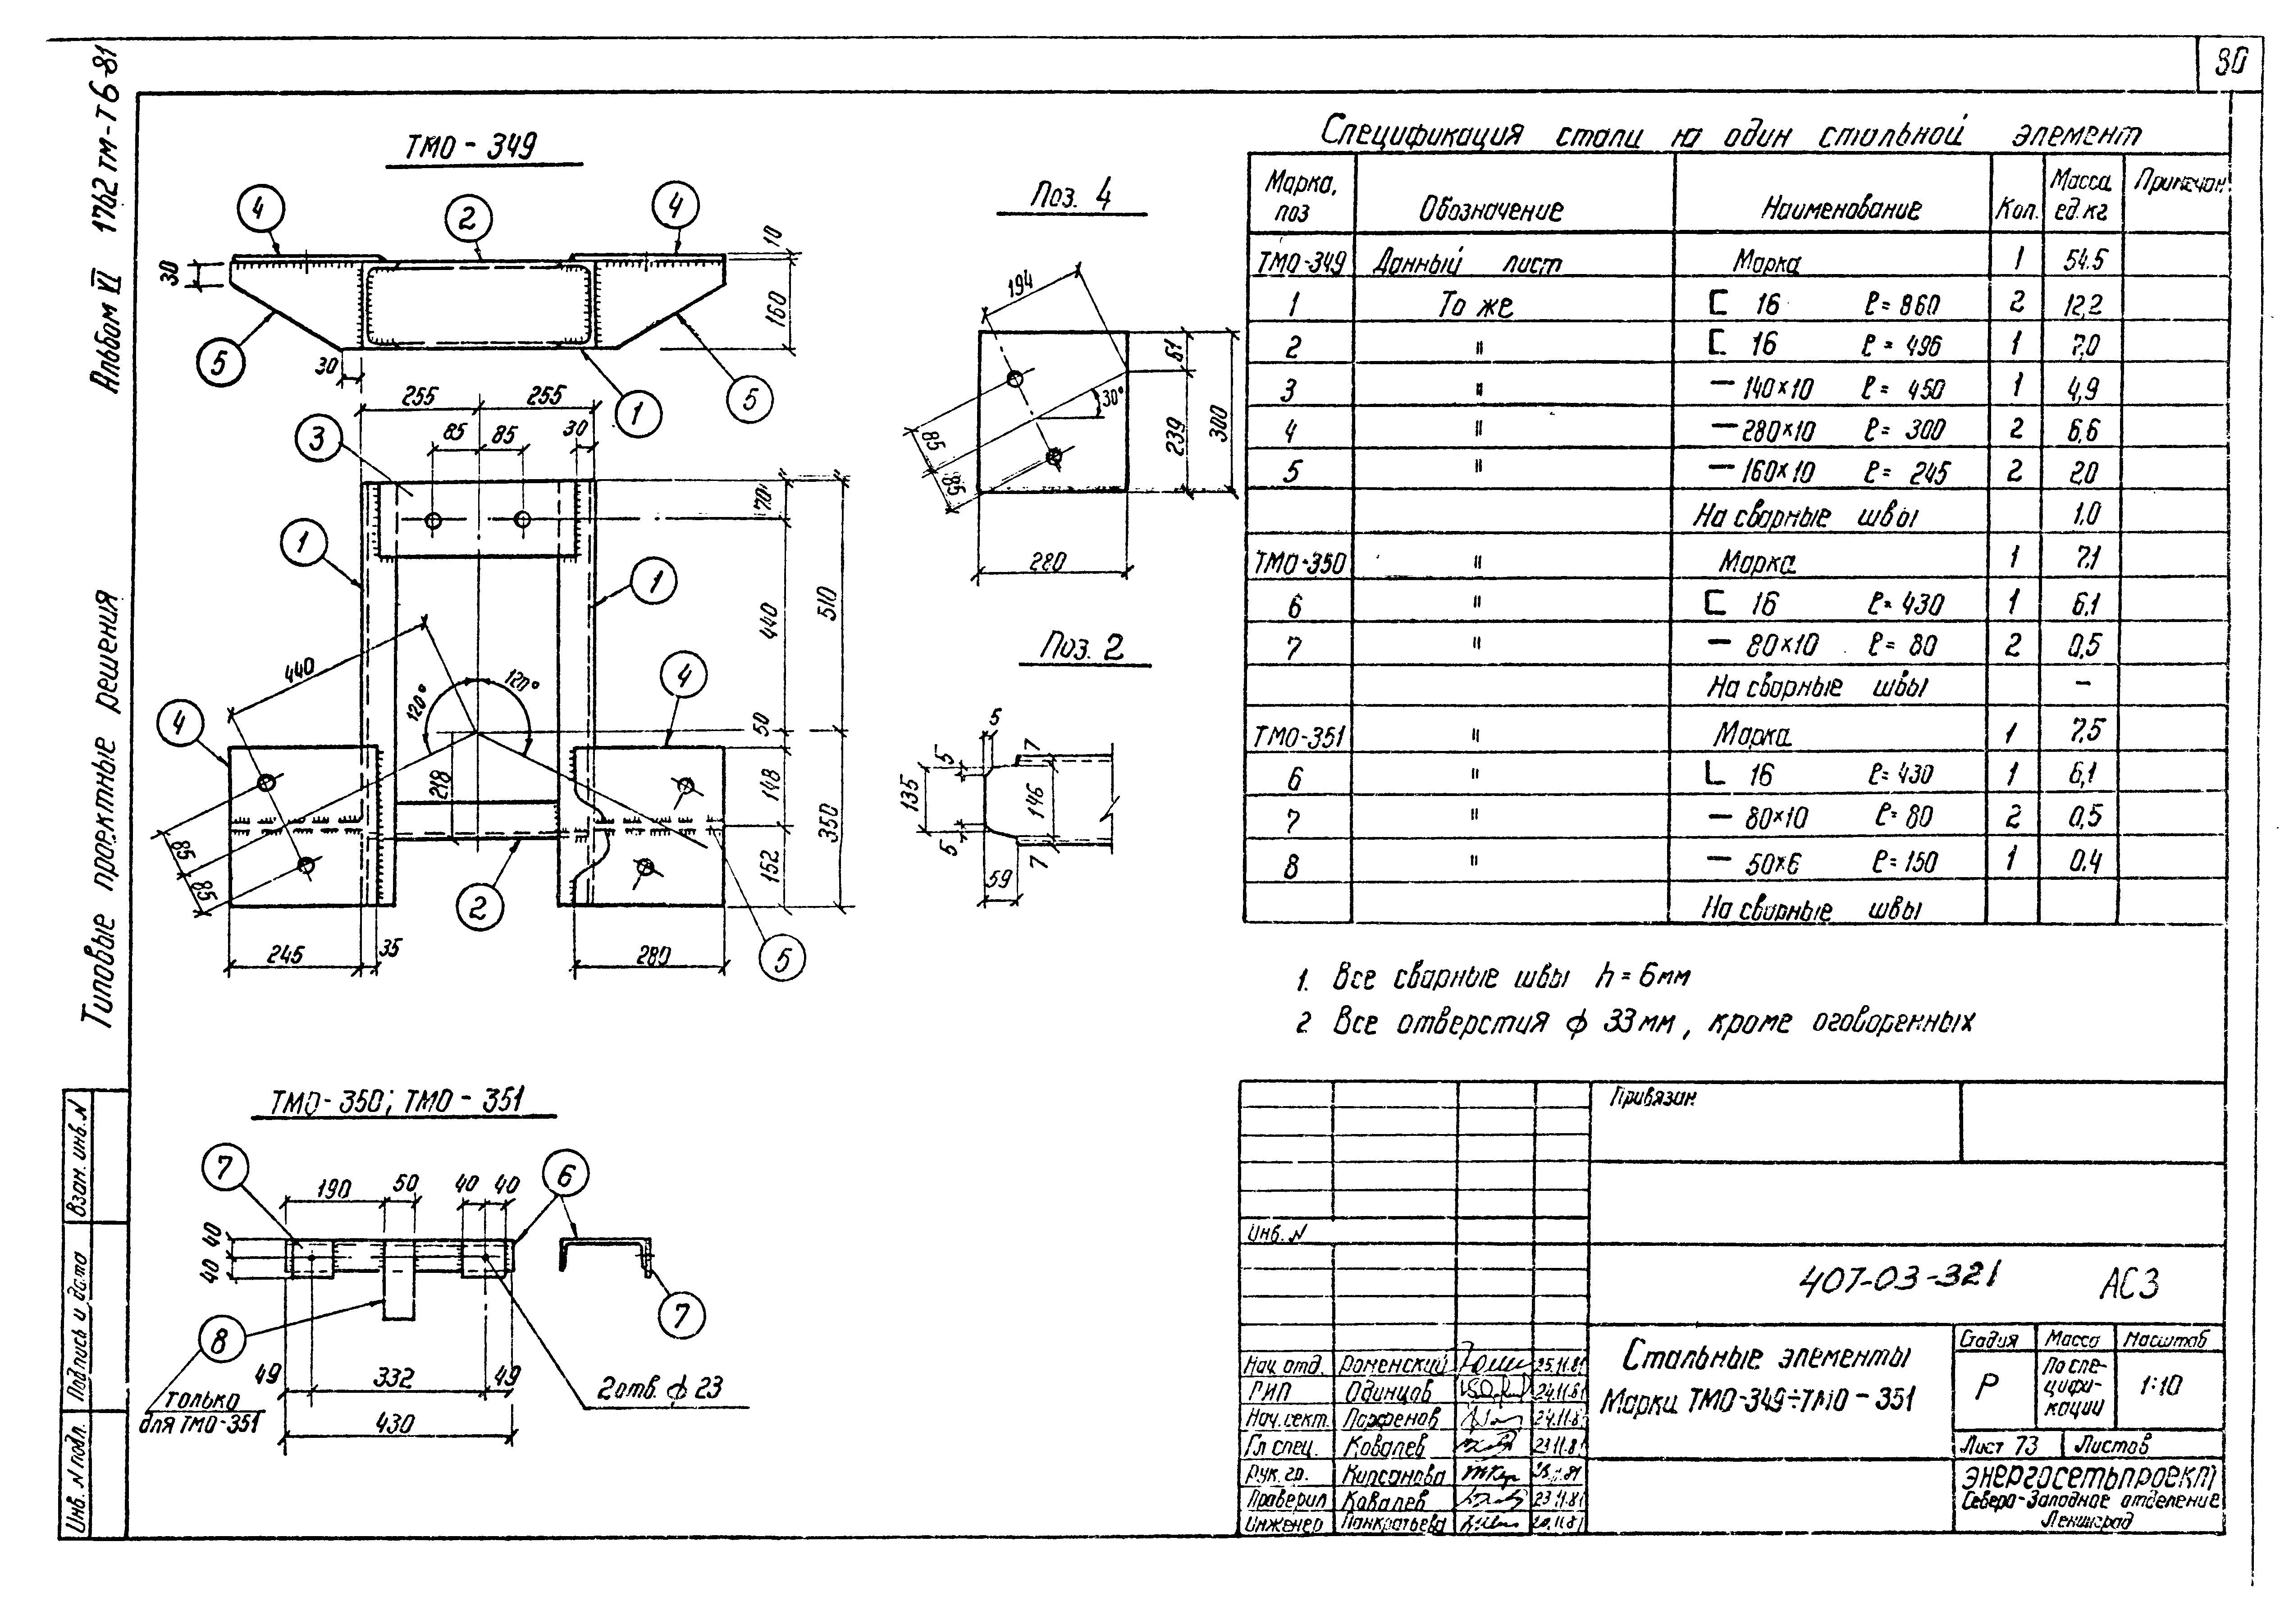 80
Альбом VI 1762 тм-Т6-81
Типовые проектные решения
Взам. инв. N
Подпись и дата
Инв. N подл.
ТМО - 349
4
2
4
10
30
160
5
30
1
5
255
255
3
85
85
30
70
1
1
440
510
440
120°
120°
4
4
50
218
148
350
85
85
152
2
245
35
280
5
Поз. 4
194
61
30°
239
300
85
85
280
Поз. 2
5
7
5
135
146
5
7
59
ТМО - 350; ТМО - 351
7
6
190
50
40
40
40
40
8
7
только
для ТМО-351
49
332
49
2 отв. ф 23
430
Спецификация стали на один стальной элемент
Марка, поз
Обозначение
Наименование
Кол.
Масса ед. кг
Примечан.
ТМО-349 Данный лист Марка 1 54.5
1 То же [ 16 ℓ= 860 2 12,2
2 " [ 16 ℓ= 496 1 7,0
3 " — 140×10 ℓ= 450 1 4,9
4 " — 280×10 ℓ= 300 2 6,6
5 " — 160×10 ℓ= 245 2 2,0
На сварные швы 1,0
ТМО-350 " Марка 1 7.1
6 " [ 16 ℓ= 430 1 6,1
7 " — 80×10 ℓ= 80 2 0,5
На сварные швы —
ТМО-351 " Марка 1 7.5
6 " [ 16 ℓ= 430 1 6,1
7 " — 80×10 ℓ= 80 2 0,5
8 " — 50×6 ℓ= 150 1 0.4
На сварные швы
1. Все сварные швы h = 6 мм
2 Все отверстия ф 33 мм, кроме оговоренных
Привязан
Инв. N
407-03-321 АС3
Нач. отд. Роменский 25.11.81
ГИП Одинцов 24.11.81
Нач. сект. Парфенов 24.11.81
Гл спец. Ковалев 23.11.81
Рук. гр. Кирсанова
Проверил Ковалев 23.11.81
Инженер Панкратьева 20.11.81
Стальные элементы
Марки ТМО-349÷ТМО-351
Стадия
Масса
Масштаб
Р
По спе-
цифи-
кации
1:10
Лист 73
Листов
Энергосетьпроект
Северо-Западное отделение
Ленинград